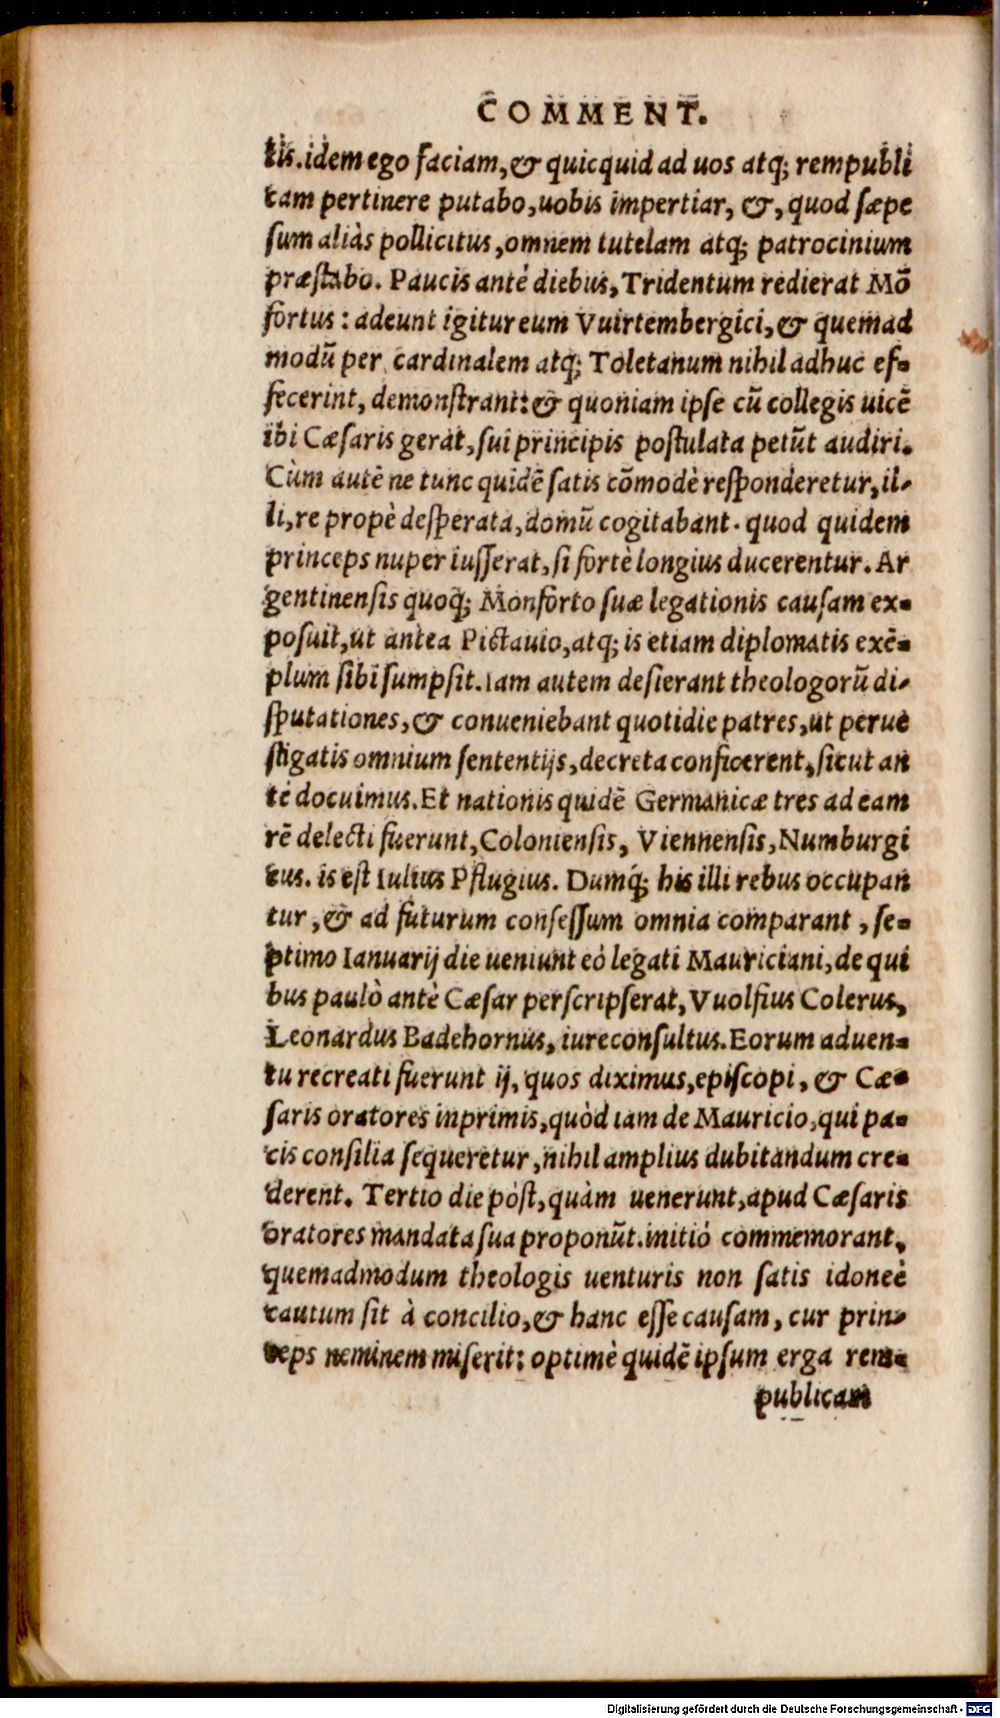 COMMENT.
tis. idem ego faciam, & quicquid ad uos atq; rempubli
cam pertinere putabo, uobis impertiar, &, quod sæpe
sum aliàs pollicitus, omnem tutelam atq; patrocinium
præstabo. Paucis antè diebus, Tridentum redierat Mō
fortus: adeunt igitur eum Vuirtembergici, & quemad
modū per cardinalem atq; Toletanum nihil adhuc ef-
fecerint, demonstrant: & quoniam ipse cū collegis uicē
ibi Cæsaris gerat, sui principis postulata petūt audiri.
Cùm autē ne tunc quidē satis cōmodè responderetur, il-
li, re propè desperata, domū cogitabant. quod quidem
princeps nuper iusserat, si fortè longius ducerentur. Ar
gentinensis quoq; Monforto suæ legationis causam ex-
posuit, ut antea Pictauio, atq; is etiam diplomatis exē-
plum sibi sumpsit. Iam autem desierant theologorū di-
sputationes, & conueniebant quotidie patres, ut perue
stigatis omnium sententijs, decreta conficerent, sicut an
tè docuimus. Et nationis quidē Germanicæ tres ad eam
rē delecti fuerunt, Coloniensis, Viennensis, Numburgi
cus. is est Iulius Pflugius. Dumq́; his illi rebus occupan
tur, & ad futurum consessum omnia comparant, se-
ptimo Ianuarij die ueniunt eò legati Mauriciani, de qui
bus paulò antè Cæsar perscripserat, Vuolfius Colerus,
Leonardus Badehornus, iureconsultus. Eorum aduen-
tu recreati fuerunt ij, quos diximus, episcopi, & Cæ-
saris oratores inprimis, quòd iam de Mauricio, qui pa-
cis consilia sequeretur, nihil amplius dubitandum cre-
derent. Tertio die pòst, quàm uenerunt, apud Cæsaris
oratores mandata sua proponūt. initiò commemorant,
quemadmodum theologis uenturis non satis idoneè
cautum sit à concilio, & hanc esse causam, cur prin-
ceps neminem miserit: optimè quidē ipsum erga rem-
publicam
Digitalisierung gefördert durch die Deutsche Forschungsgemeinschaft - DFG